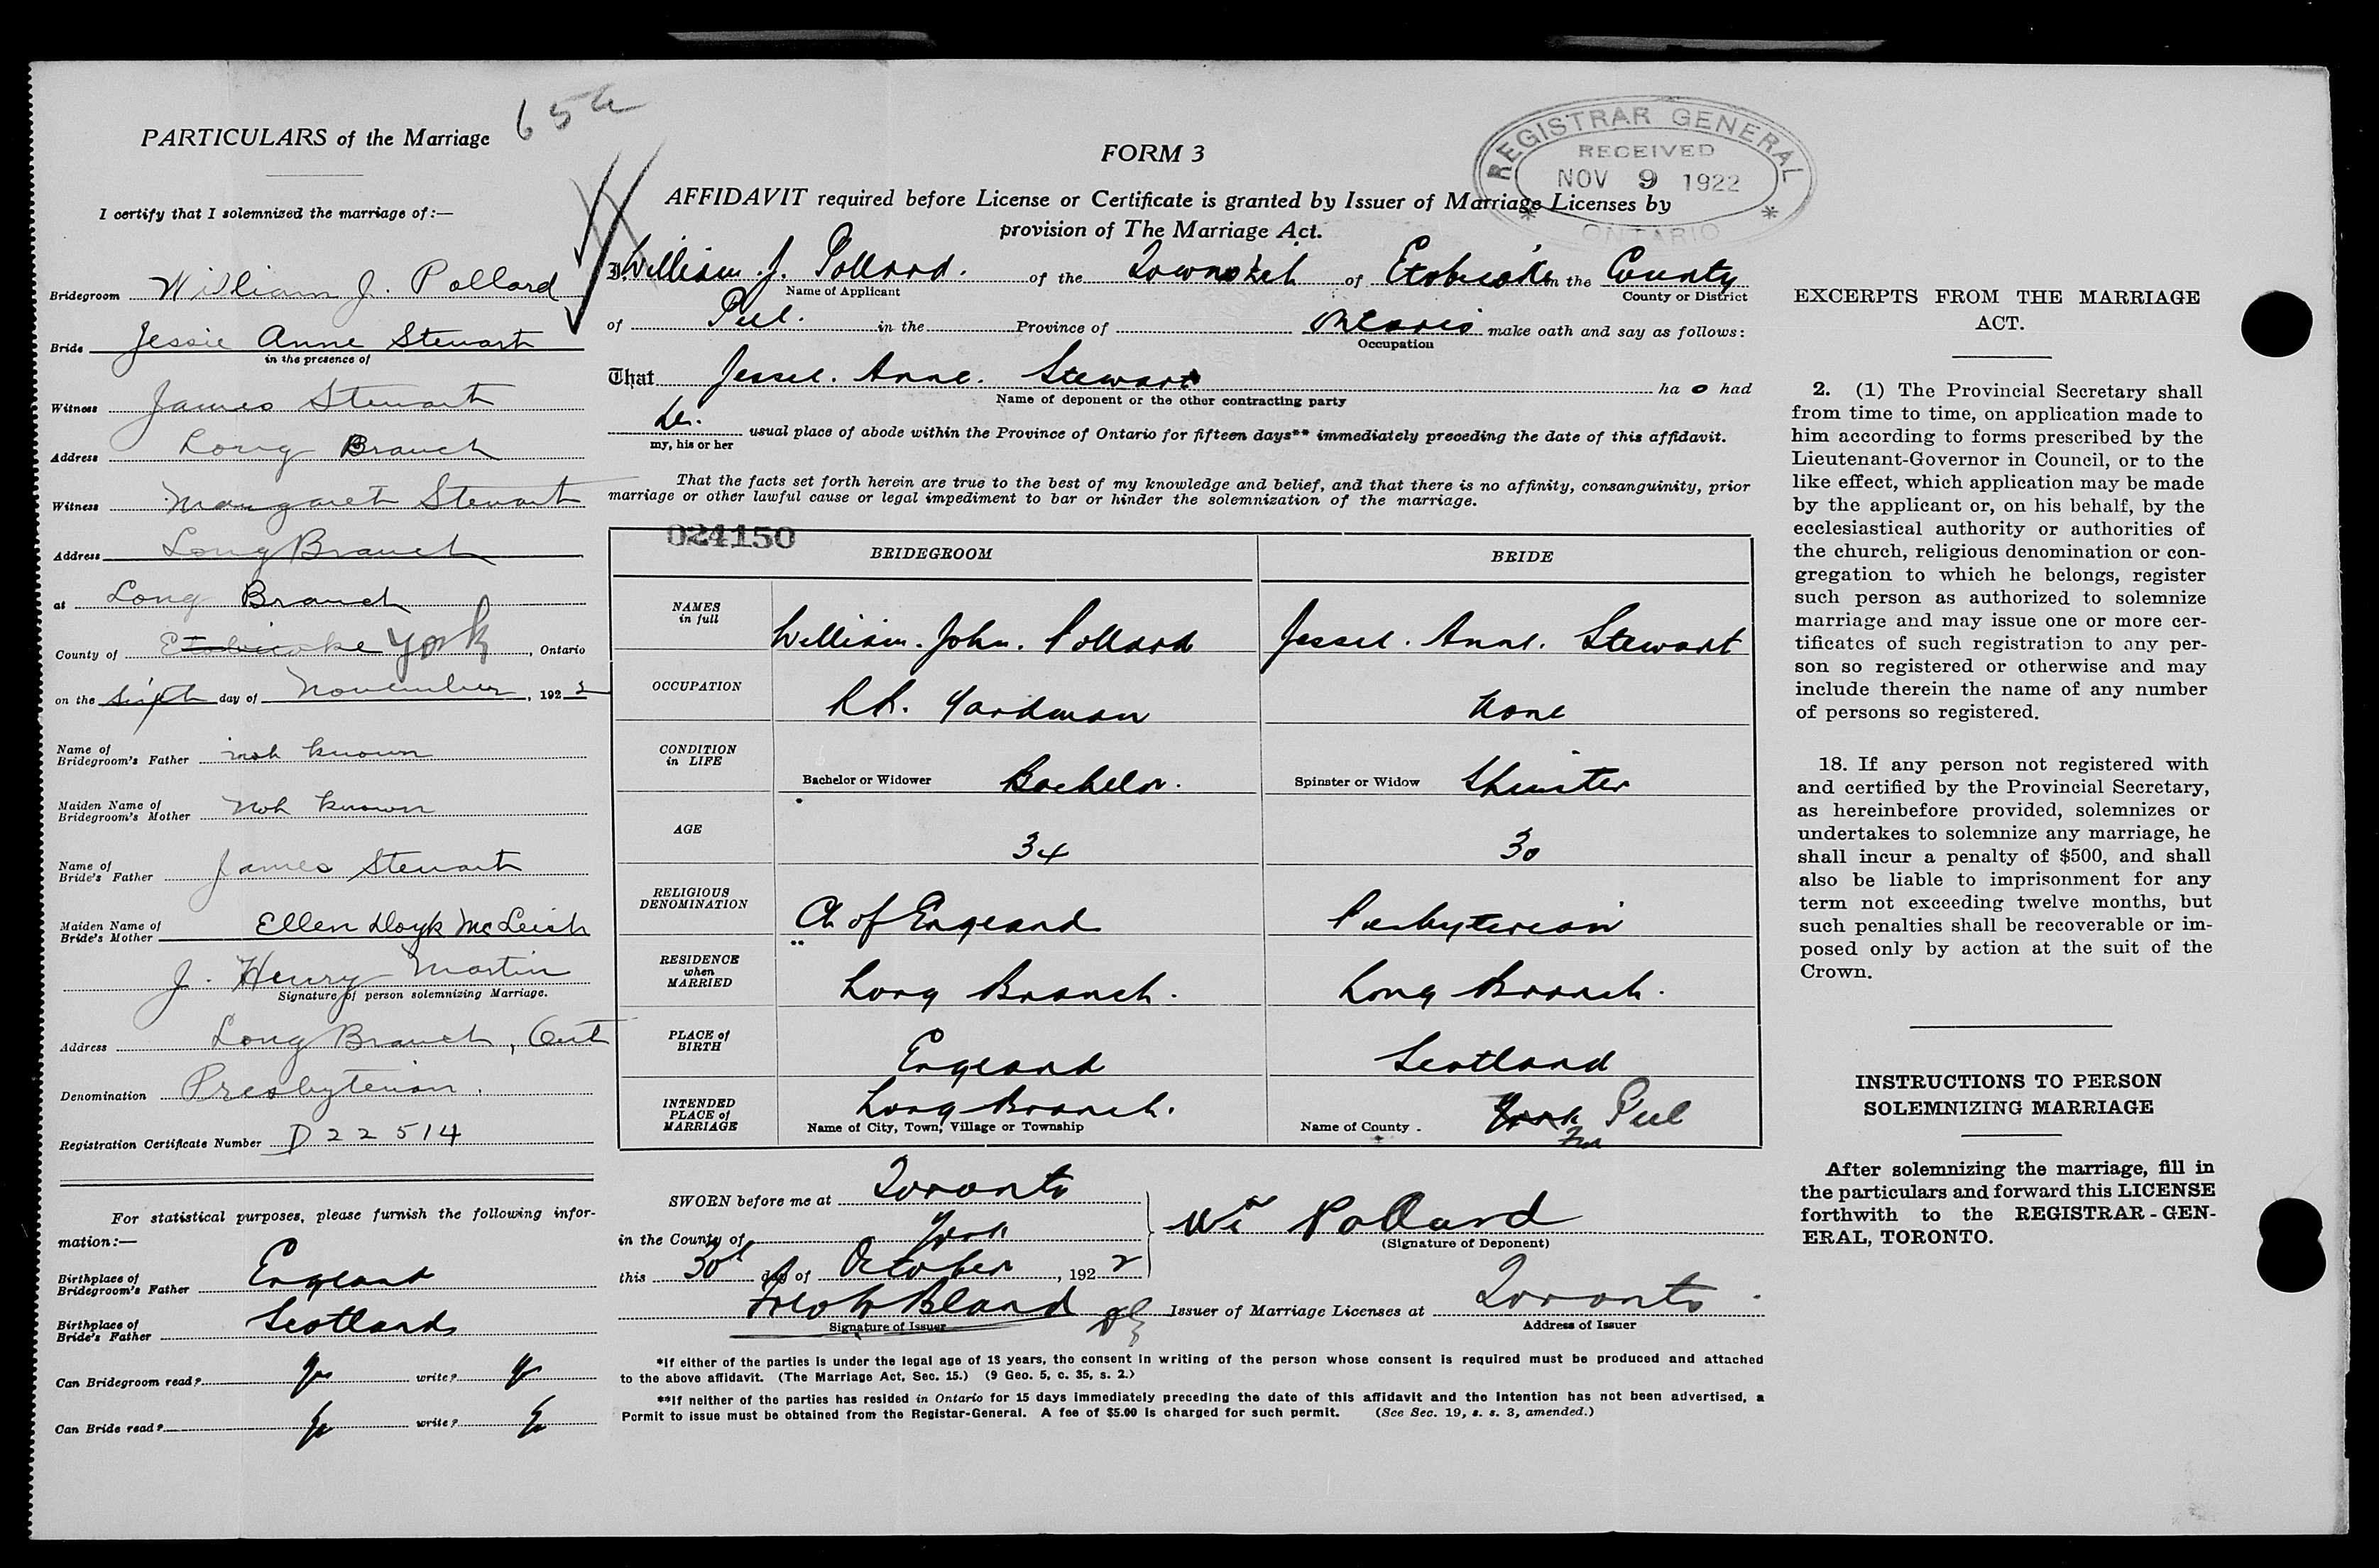 PARTICULARS of the Marriage
I certify that I solemnized the marriage of:—
Bridegroom William J. Pollard
Bride Jessie Anne Stewart
in the presence of
Witness James Stewart
Address Long Branch
Witness Margaret Stewart
Address Long Branch
at Long Branch
County of Etobicoke York, Ontario
on the sixth day of November, 1922
Name of
Bridegroom's Father not known
Maiden Name of
Bridegroom's Mother not known
Name of
Bride's Father James Stewart
Maiden Name of
Bride's Mother Ellen McLeish
J. Henry Martin
Signature of person solemnizing Marriage.
Address Long Branch, Ont
Denomination Presbyterian.
Registration Certificate Number D 22514
For statistical purposes, please furnish the following infor-
mation:—
Birthplace of
Bridegroom's Father England
Birthplace of
Bride's Father Scotland
Can Bridegroom read? Yes write?
Can Bride read? write?
FORM 3
REGISTRAR GENERAL
RECEIVED
NOV 9 1922
ONTARIO
AFFIDAVIT required before License or Certificate is granted by Issuer of Marriage Licenses by
provision of The Marriage Act.
I, William. J. Pollard. of the Township of Etobicoke in the County
Name of Applicant County or District
of Peel. in the Province of Ontario make oath and say as follows:
Occupation
That Jessie. Anne. Stewart ha had
Name of deponent or the other contracting party
usual place of abode within the Province of Ontario for fifteen days** immediately preceding the date of this affidavit.
my, his or her
That the facts set forth herein are true to the best of my knowledge and belief, and that there is no affinity, consanguinity, prior
marriage or other lawful cause or legal impediment to bar or hinder the solemnization of the marriage.
024150
BRIDEGROOM BRIDE
NAMES
in full William. John. Pollard Jessie. Anne. Stewart
OCCUPATION R.R. Yardman None
CONDITION
in LIFE Bachelor or Widower Bachelor. Spinster or Widow Spinster
AGE 34 30
RELIGIOUS
DENOMINATION Ch of England Presbyterian
RESIDENCE
when
MARRIED Long Branch. Long Branch.
PLACE of
BIRTH England Scotland
INTENDED
PLACE of
MARRIAGE Long Branch. York Peel
Name of City, Town, Village or Township Name of County
SWORN before me at Toronto
in the County of York
this 30th day of October, 1922
Wm Pollard
(Signature of Deponent)
Bland Issuer of Marriage Licenses at Toronto
Signature of Issuer Address of Issuer
*If either of the parties is under the legal age of 18 years, the consent in writing of the person whose consent is required must be produced and attached
to the above affidavit. (The Marriage Act, Sec. 15.) (9 Geo. 5, c. 35, s. 2.)
**If neither of the parties has resided in Ontario for 15 days immediately preceding the date of this affidavit and the intention has not been advertised, a
Permit to issue must be obtained from the Registar-General. A fee of $5.00 is charged for such permit. (See Sec. 19, s. s. 3, amended.)
EXCERPTS FROM THE MARRIAGE
ACT.
2. (1) The Provincial Secretary shall
from time to time, on application made to
him according to forms prescribed by the
Lieutenant-Governor in Council, or to the
like effect, which application may be made
by the applicant or, on his behalf, by the
ecclesiastical authority or authorities of
the church, religious denomination or con-
gregation to which he belongs, register
such person as authorized to solemnize
marriage and may issue one or more cer-
tificates of such registration to any per-
son so registered or otherwise and may
include therein the name of any number
of persons so registered.
18. If any person not registered with
and certified by the Provincial Secretary,
as hereinbefore provided, solemnizes or
undertakes to solemnize any marriage, he
shall incur a penalty of $500, and shall
also be liable to imprisonment for any
term not exceeding twelve months, but
such penalties shall be recoverable or im-
posed only by action at the suit of the
Crown.
INSTRUCTIONS TO PERSON
SOLEMNIZING MARRIAGE
After solemnizing the marriage, fill in
the particulars and forward this LICENSE
forthwith to the REGISTRAR-GEN-
ERAL, TORONTO.